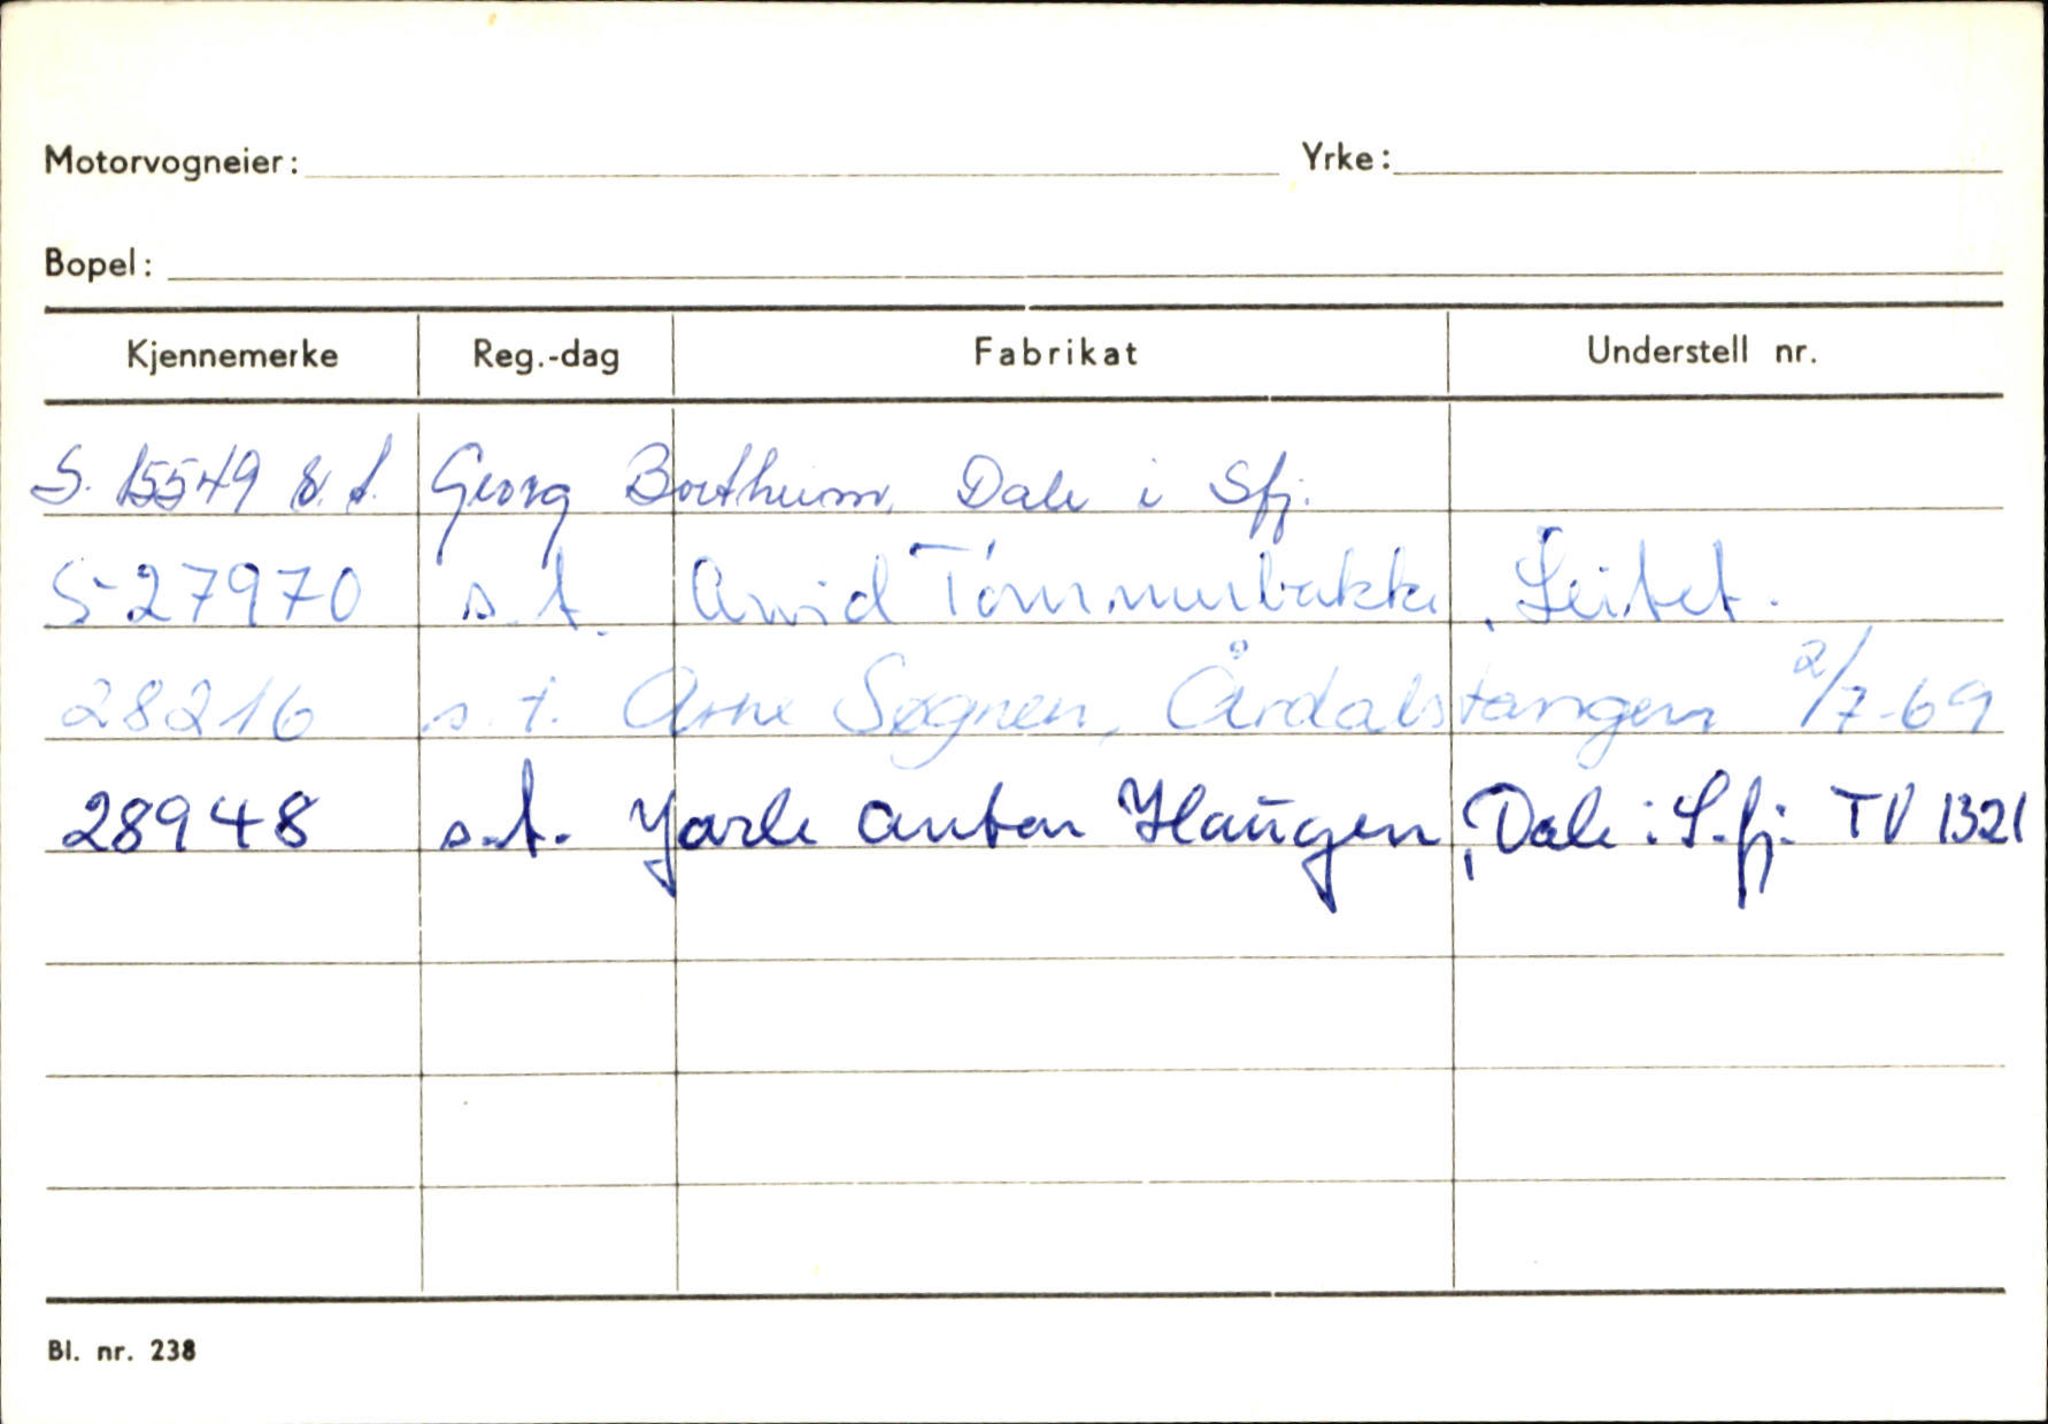 Motorvogneier: Yrke:
Bopel:
Kjennemerke Reg.-dag Fabrikat Understell nr.
S. 15549 s.t. Georg Borthum, Dale i Sfj.
S-27970 s.t. Arvid Tømmerbakke, Leitet.
28216 s.t. Arne Søgnen, Årdalstangen 2/7-69
28948 s.t. Jarle Anton Haugen, Dale i S.fj. TV 1321
Bl. nr. 238